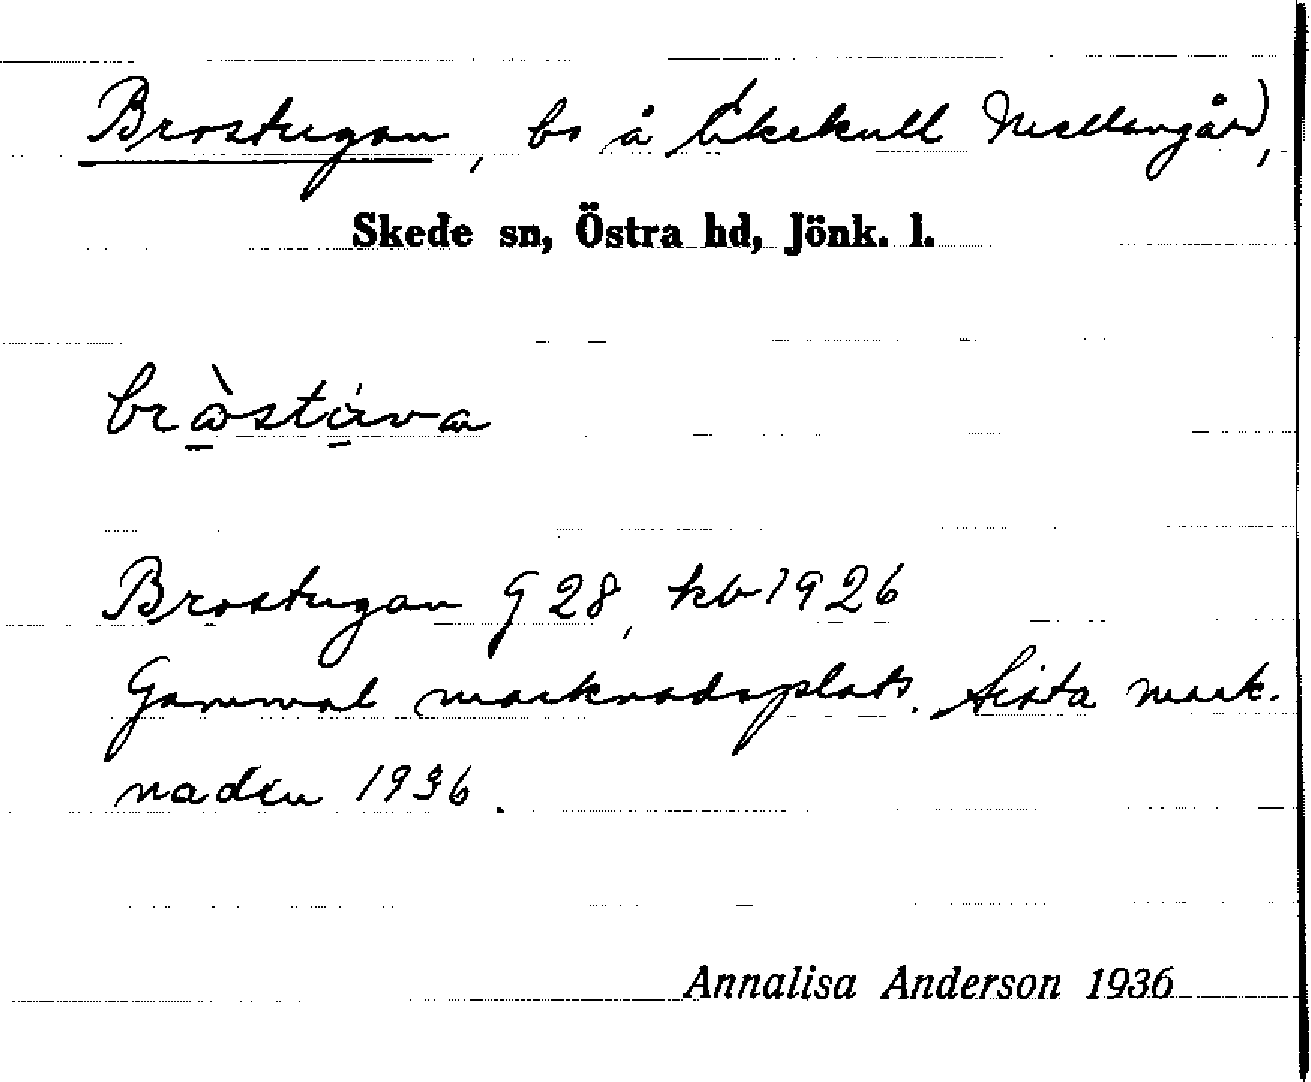 Brostugan, bs å Ekekull Mellangård,
Skede sn, Östra hd, Jönk. l.
Brostugan G 28, kb 1926
Gammal marknadsplats. Sista mark-
naden 1936.
Annalisa Anderson 1936